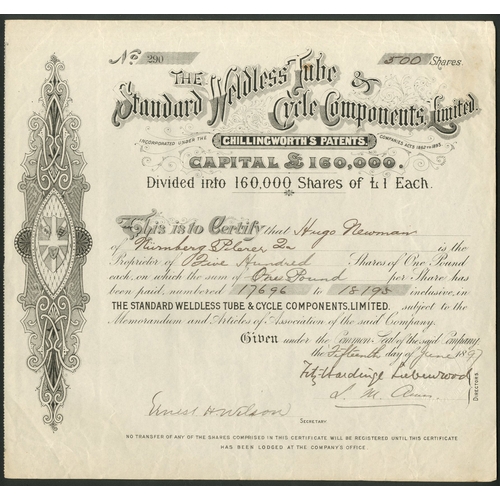 No. 290 500 Shares.
THE
Standard Weldless Tube &
Cycle Components, Limited.
INCORPORATED UNDER THE COMPANIES ACTS 1862 TO 1893.
CHILLINGWORTH'S PATENTS.
CAPITAL £160,000.
Divided into 160,000 Shares of £1 Each.
This is to Certify that Hugo Newman
of Nürnberg is the
Proprietor of Five Hundred Shares of One Pound
each, on which the sum of One Pound per Share has
been paid, numbered 17696 to 18195 inclusive, in
THE STANDARD WELDLESS TUBE & CYCLE COMPONENTS, LIMITED. subject to the
Memorandum and Articles of Association of the said Company.
Given under the Common Seal of the said Company
the Fifteenth day of June 1897
DIRECTORS.
Ernest H Wilson
SECRETARY.
NO TRANSFER OF ANY OF THE SHARES COMPRISED IN THIS CERTIFICATE WILL BE REGISTERED UNTIL THIS CERTIFICATE
HAS BEEN LODGED AT THE COMPANY'S OFFICE.